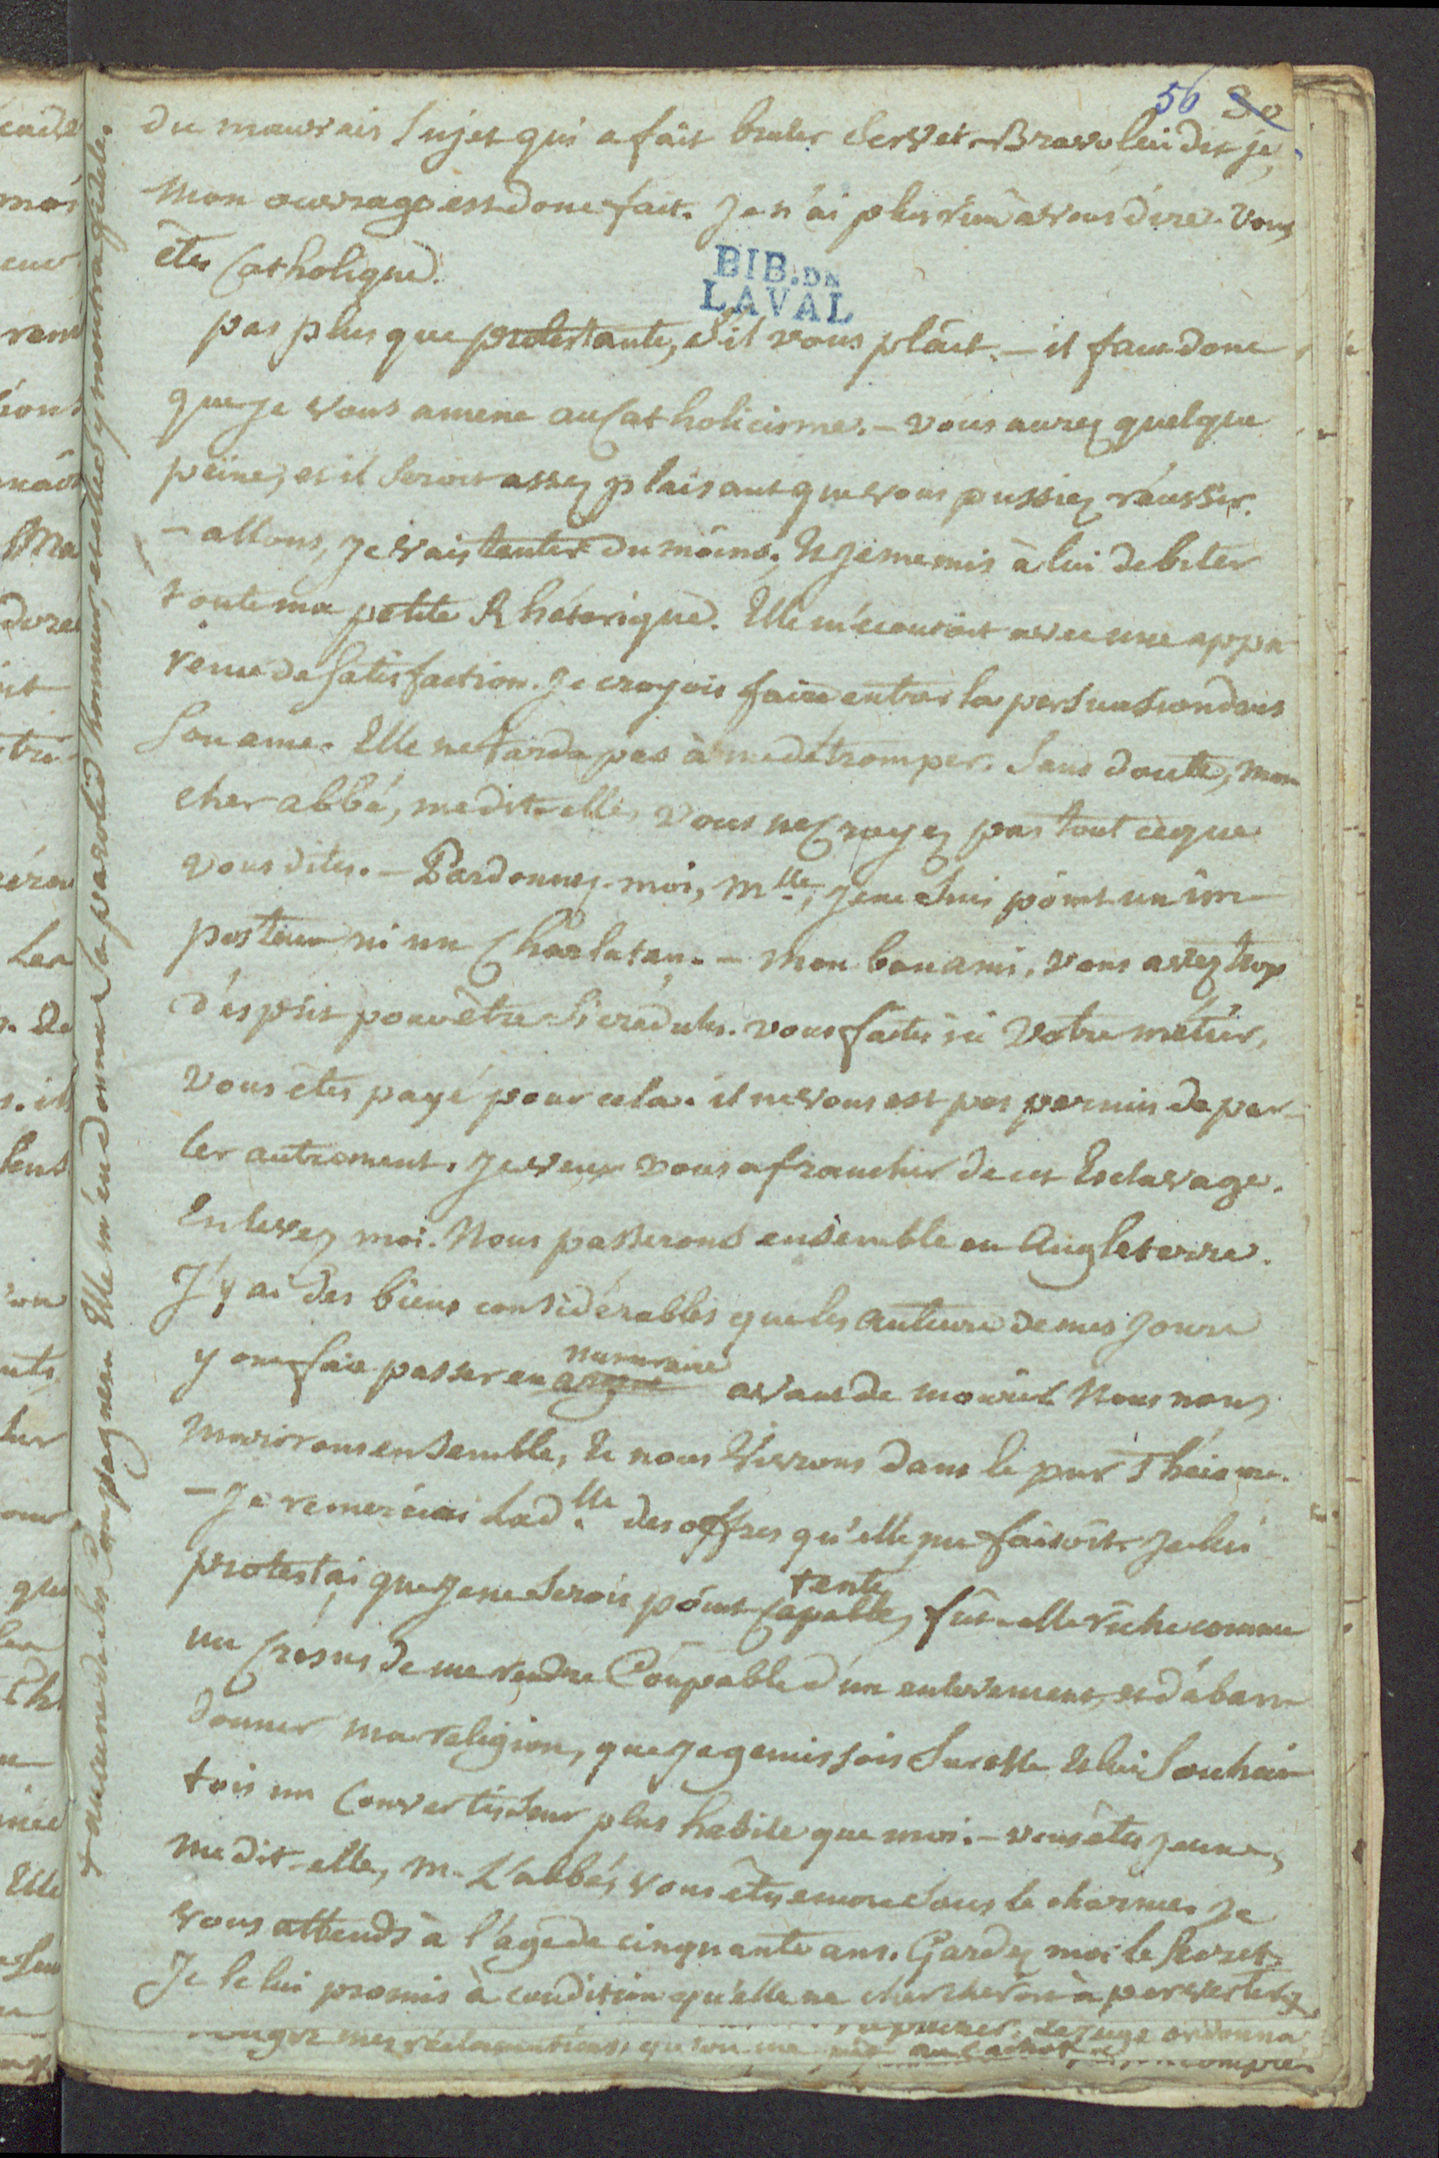 56 30
du mauvais Sujet qui a fait bruler Servet. Bravo lui dis je,
Mon ouvrage est donc fait. Je n'ai plus rien à vous dire. Vous
êtes Catholique.
BIB. DE
LAVAL
pas plus que protestante, S'il vous plait. — il faut donc
que je vous amene au Catholicisme. — vous aurez quelque
peine, et il seroit assez plaisant que vous pussiez réussir.
— allons, je vais tenter du moins. Et je me mis à lui debiter
toute ma petite Rhétorique. Elle m'écoutoit avec une appa
rence de Satisfaction. Je croyois faire entrer la persuasion dans
Son ame. Elle ne tarda pas à me détromper. Sans doute, mon
cher abbé, me dit-elle, vous ne Croyez pas tout ce que
vous dites. — Pardonnez-moi, Mlle, je ne Suis point un im-
posteur ni un Charlatan. — mon bon ami, vous avez trop
d'esprit pour être Si crédule. vous faites ici votre métier,
vous êtes payé pour cela. il ne vous est pas permis de par-
ler autrement. Je veux vous afranchir de cet Esclavage.
Enlevez moi. Nous passerons ensemble en Angleterre.
J'y ai des biens considérables que les auteurs de mes jours
y ont fait passer en argent numeraire avant de mourir. Nous nous
marirons ensemble, Et nous Vivrons dans le pur Théisme.
— Je remerciai Lad.lle des offres qu'elle me faisoit. Je lui
protestai que je ne Serois point Capable, tente fût-elle riche comme
un Crésus de me rendre Coupable d'un enlevement, et d'aban-
donner ma religion, que je gemissois Sur elle Et lui Souhai-
tois un Convertisseur plus habile que moi. — vous êtes jeune,
me dit-elle, M. L'abbé, vous êtes encore Sous le charme. Je
vous attends à l'age de cinquante ans. Gardez moi le Secret.
Je le lui promis à condition qu'elle ne chercheroit à pervertir
+ aucune de ses Compagnes. Elle m'en donna Sa parole d'honneur, et elle y mourra fidele.
Le juge ordonna
mes réclamations, qu'on me mit au cachot